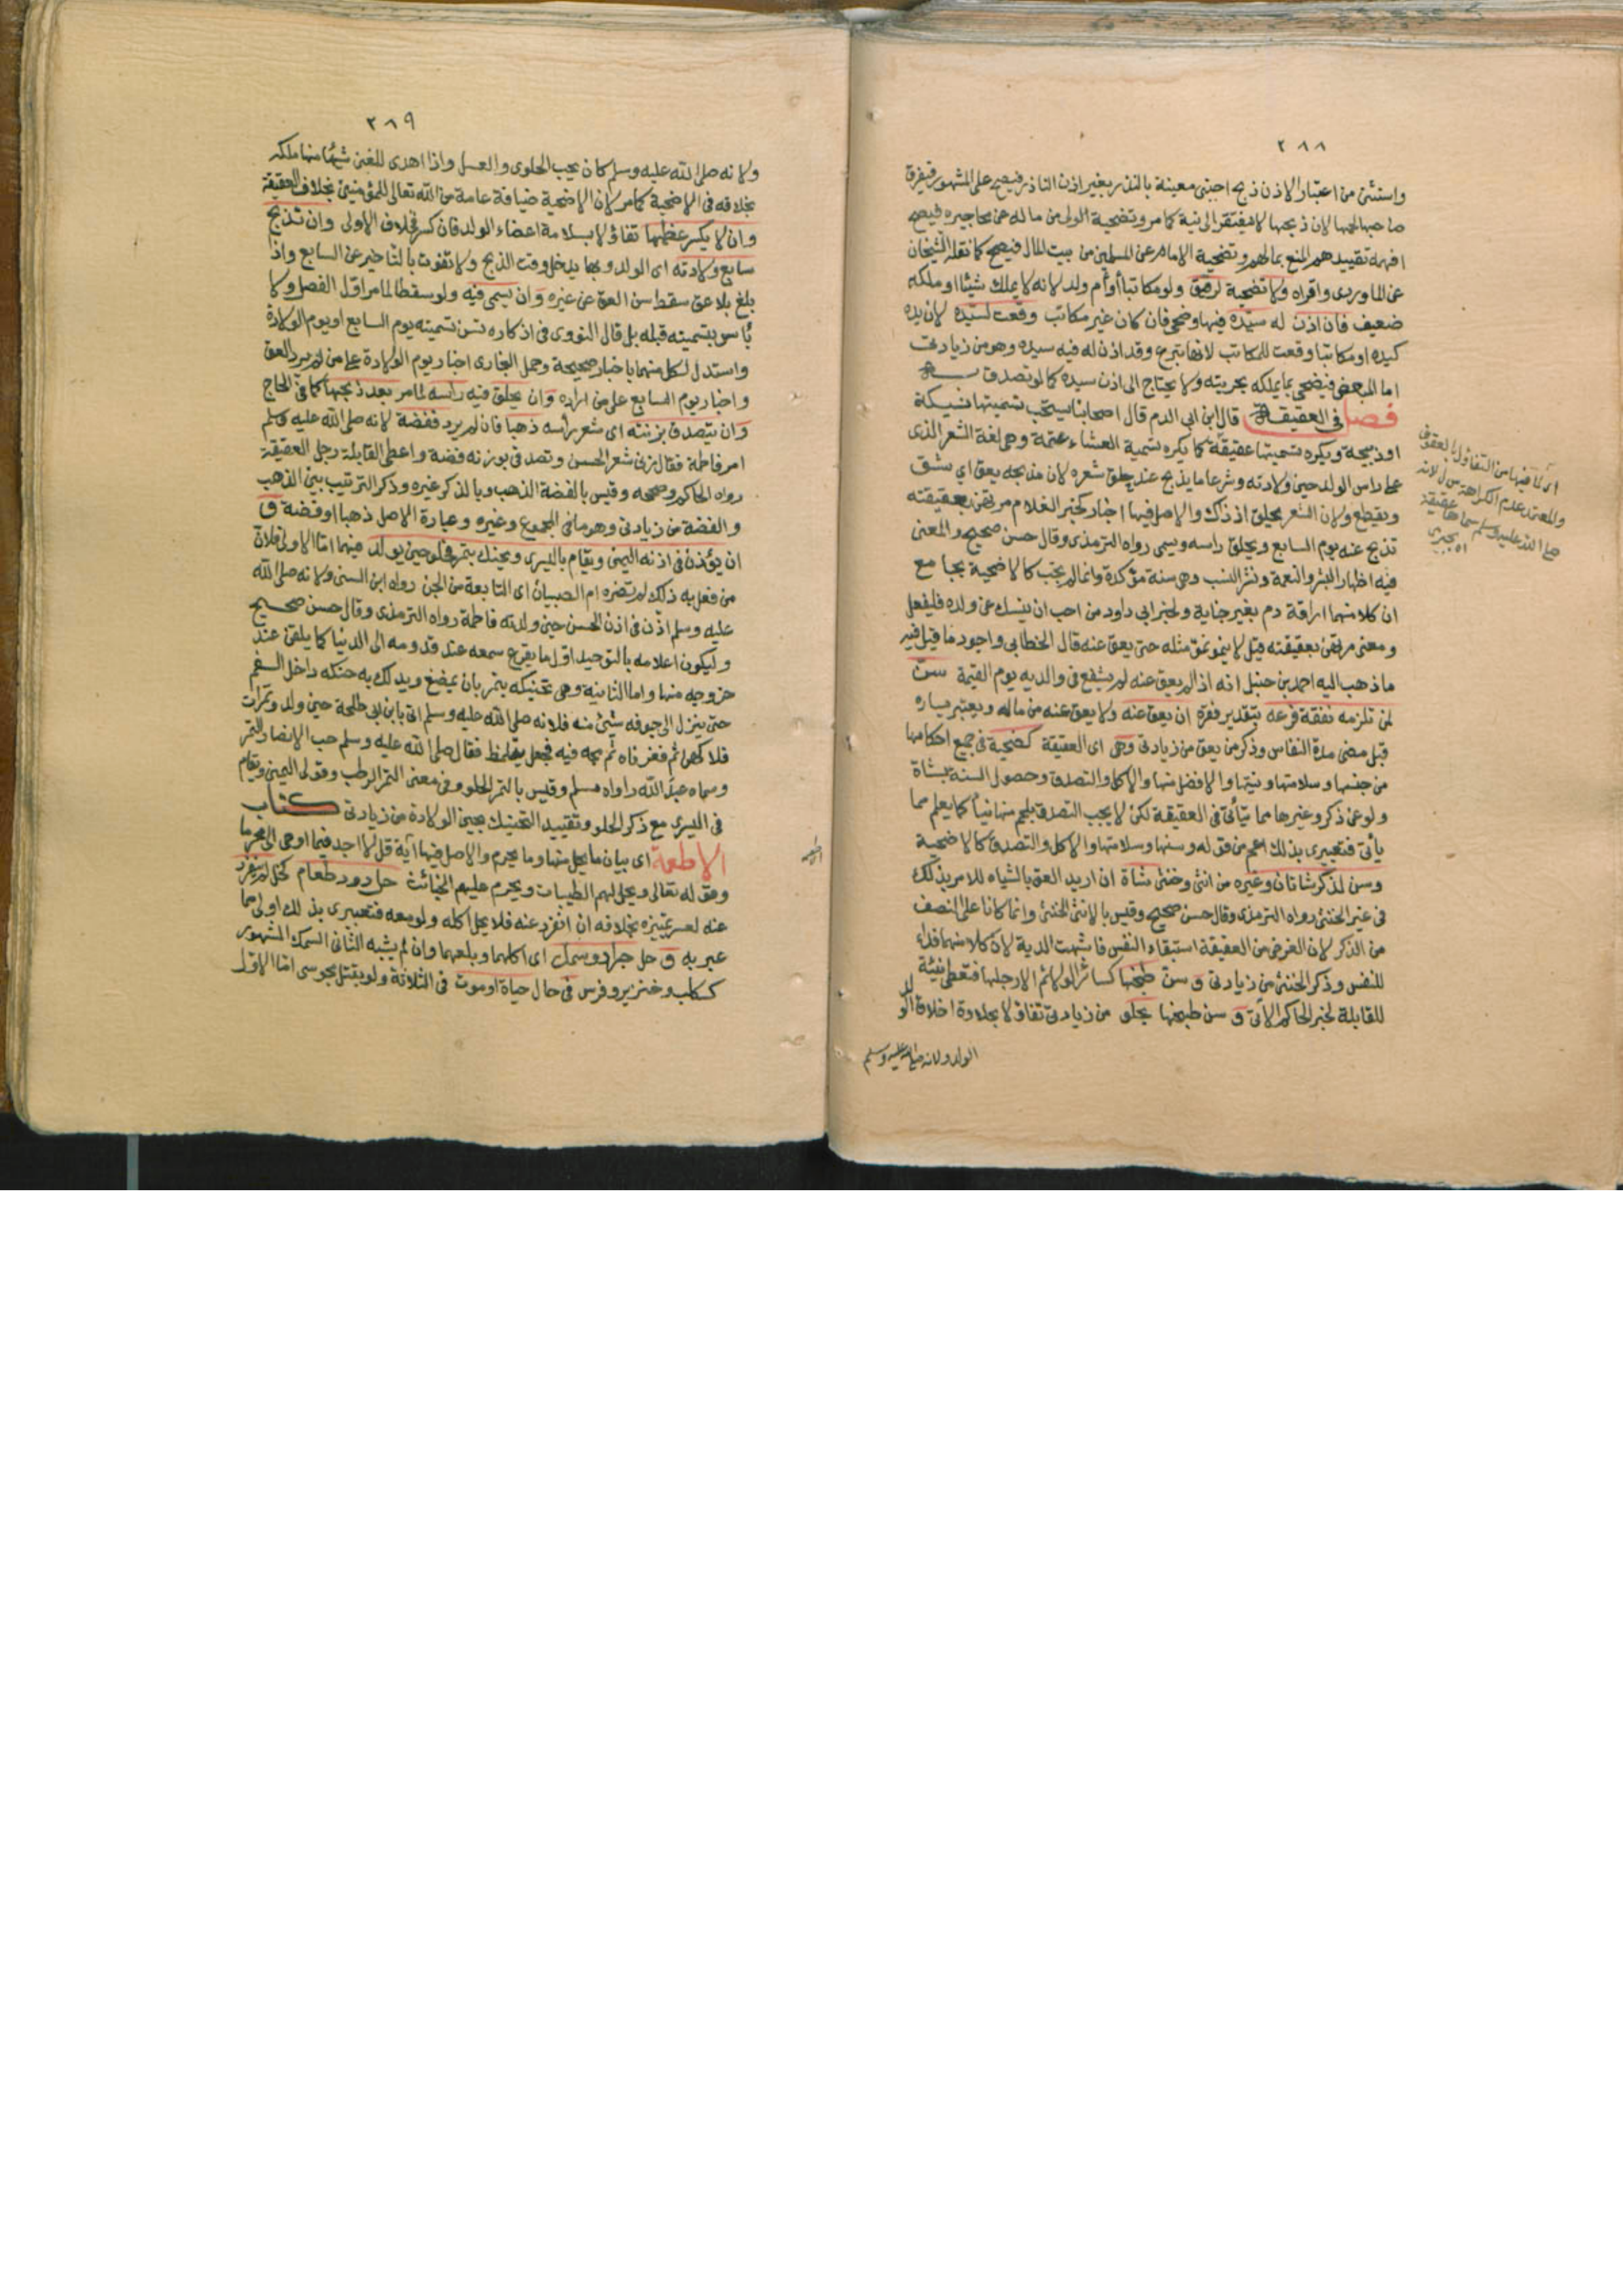 ٢٨٨
واستثنى من اعتبار الاذن ذبح اجنبى معينة بالنذر بغير اذن الناذر فيصح على المشهور فيفرق
صاحبها لحمها لان ذبحها لا يفتقر الى نية كما مر وتضحية الولى من ماله عن محاجيره فيصح كما
افهمه تقييدهم المنع بمالهم وتضحية الامام عن المسلمين من بيت المال فيصح كما نقله الشيخان
عن الماوردى واقراه ولا تضحية لرقيق ولو مكاتبا او أم ولد لانه لا يملك شيئا او ملكه
ضعيف فان اذن له سيده فيها وضحى فان كان غير مكاتب وقعت لسيده لان يده
كيده او مكاتبا وقعت للمكاتب لانها تبرع وقد اذن له فيه سيده وهو من زيادتى
اما المبعض فيضحى بما يملكه بحريته ولا يحتاج الى اذن سيده كما لو تصدق به
فصل فى العقيقة قال ابن ابى الدم قال اصحابنا يستحب تسميتها نسيكة
او ذبيحة ويكره تسميتها عقيقة كما يكره تسمية العشاء عتمة وهى لغة الشعر الذى
على راس الولد حين ولادته وشرعا ما يذبح عند حلق شعره لان مذبحه يعق اى يشق
ويقطع ولان الشعر يحلق اذ ذاك والاصل فيها اخبار كخبر الغلام مرتهن بعقيقته
تذبح عنه يوم السابع ويحلق راسه ويسمى رواه الترمذى وقال حسن صحيح والمعنى
فيه اظهار البشر والنعمة ونشر النسب وهى سنة مؤكدة وانما لم تجب كالاضحية بجامع
ان كلا منهما اراقة دم بغير جناية ولخبر ابى داود من احب ان ينسك عن ولده فليفعل
ومعنى مرتهن بعقيقته قيل لا ينمو نمو مثله حتى يعق عنه قال الخطابى واجود ما قيل فيه
ما ذهب اليه احمد بن حنبل انه اذا لم يعق عنه لم يشفع فى والديه يوم القيمة سن
لمن تلزمه نفقة فرعه بتقدير فقره ان يعق عنه ولا يعق عنه من ماله ويعتبر يساره
قبل مضى مدة النفاس وذكر من يعق من زيادتى وهى اى العقيقة كضحية فى جميع احكامها
من جنسها وسلامتها ونيتها والافضل منها والاكل والتصدق وحصول السنة بشاة
ولو عن ذكر وغيرها مما يتأتى فى العقيقة لكن لا يجب التصدق بلحم منها نيأ كما يعلم مما
يأتى فتعبيرى بذلك اعم من قوله وسنها وسلامتها والاكل والتصدق كالاضحية
وسن لذكر شاتان وغيره من انثى وخنثى شاة ان اريد العق بالشياه للامر بذلك
فى غير الخنثى رواه الترمذى وقال حسن صحيح وقيس بالانثى الخنثى وانما كانا على النصف
من الذكر لان الغرض من العقيقة استبقاء النفس فاشبهت الدية لان كلا منهما فداء
للنفس وذكر الخنثى من زيادتى و سن طبخها كسائر الولائم الا رجلها فتعطى نيئة
للقابلة لخبر الحاكم الاتى و سن طبخها بحلو من زيادتى تفاؤلا بحلاوة اخلاق الو
لد
الولد ولانه صلى الله عليه وسلم
اى لما فيها من التفاؤل بالعقوق
والمعتمد عدم الكراهة لانه
صلى الله عليه وسلم سماها عقيقة
اه بجيرمى
٢٨٩
ولانه صلى الله عليه وسلم كان يحب الحلوى والعسل واذا اهدى للغنى شيئا منها ملكه
بخلافه فى الاضحية كما مر لان الاضحية ضيافة عامة من الله تعالى للمؤمنين بخلاف العقيقة
وان لا يكسر عظمها تفاؤلا بسلامة اعضاء الولد فان كسر فخلاف الاولى وان تذبح
سابع ولادته اى الولد وبها يدخل وقت الذبح ولا تفوت بالتاخير عن السابع واذا
بلغ بلا عق سقط سن العق عن غيره وان يسمى فيه ولو سقطا لما مر اول الفصل ولا
بأس بتسميته قبله بل قال النووى فى اذكاره تسن تسميته يوم السابع او يوم الولادة
واستدل لكل منهما باخبار صحيحة وحمل البخارى اخبار يوم الولادة على من لم يرد العق
واخبار يوم السابع على من اراده وان يحلق فيه راسه لما مر بعد ذبحها كما فى الحاج
وان يتصدق بزنته اى شعر رأسه ذهبا فان لم يرد ففضة لانه صلى الله عليه وسلم
امر فاطمة فقال زنى شعر الحسين وتصدقى بوزنه فضة واعطى القابلة رجل العقيقة
رواه الحاكم وصححه وقيس بالفضة الذهب وبالذكر غيره وذكر الترتيب بين الذهب
والفضة من زيادتى وهو ما فى المجموع وغيره وعبارة الاصل ذهبا او فضة و
ان يؤذن فى اذنه اليمنى ويقام باليسرى ويحنك بتمر فحلو حين يولد فيهما اما الاولى فلان
من فعل به ذلك لم تضره ام الصبيان اى التابعة من الجن رواه ابن السنى ولانه صلى الله
عليه وسلم اذن فى اذن الحسن حين ولدته فاطمة رواه الترمذى وقال حسن صحيح
وليكون اعلامه بالتوحيد اول ما يقرع سمعه عند قدومه الى الدنيا كما يلقن عند
خروجه منها واما الثانية وهى تحنيكه بتمر بان يمضغ ويدلك به حنكه داخل الفم
حتى ينزل الى جوفه شيئ منه فلانه صلى الله عليه وسلم اتى بابن ابى طلحة حين ولد وتمرات
فلاكهن ثم فغر فاه ثم مجه فيه فجعل يتلمظ فقال صلى الله عليه وسلم حب الانصار التمر
وسماه عبد الله رواه مسلم وقيس بالتمر الحلو وفى معنى التمر الرطب وقولى اليمنى ويقام
فى اليسرى مع ذكر الحلو وتقييد التحنيك بحين الولادة من زيادتى كتاب
الاطعمة اى بيان ما يحل منها وما يحرم والاصل فيها آية قل لا اجد فيما اوحى الى محرما
وقوله تعالى ويحل لهم الطيبات ويحرم عليهم الخبائث حل دود طعام كخل لم ينفرد
عنه لعسر تمييزه بخلافه ان انفرد عنه فلا يحل اكله ولو معه فتعبيرى بذلك اولى مما
عبر به و حل جراد وسمك اى اكلهما وبلعهما وان لم يشبه الثانى السمك المشهور
ككلب وخنزير وفرس فى حال حياة او موت فى الثلاثة ولو بقتل مجوسى اما الاول